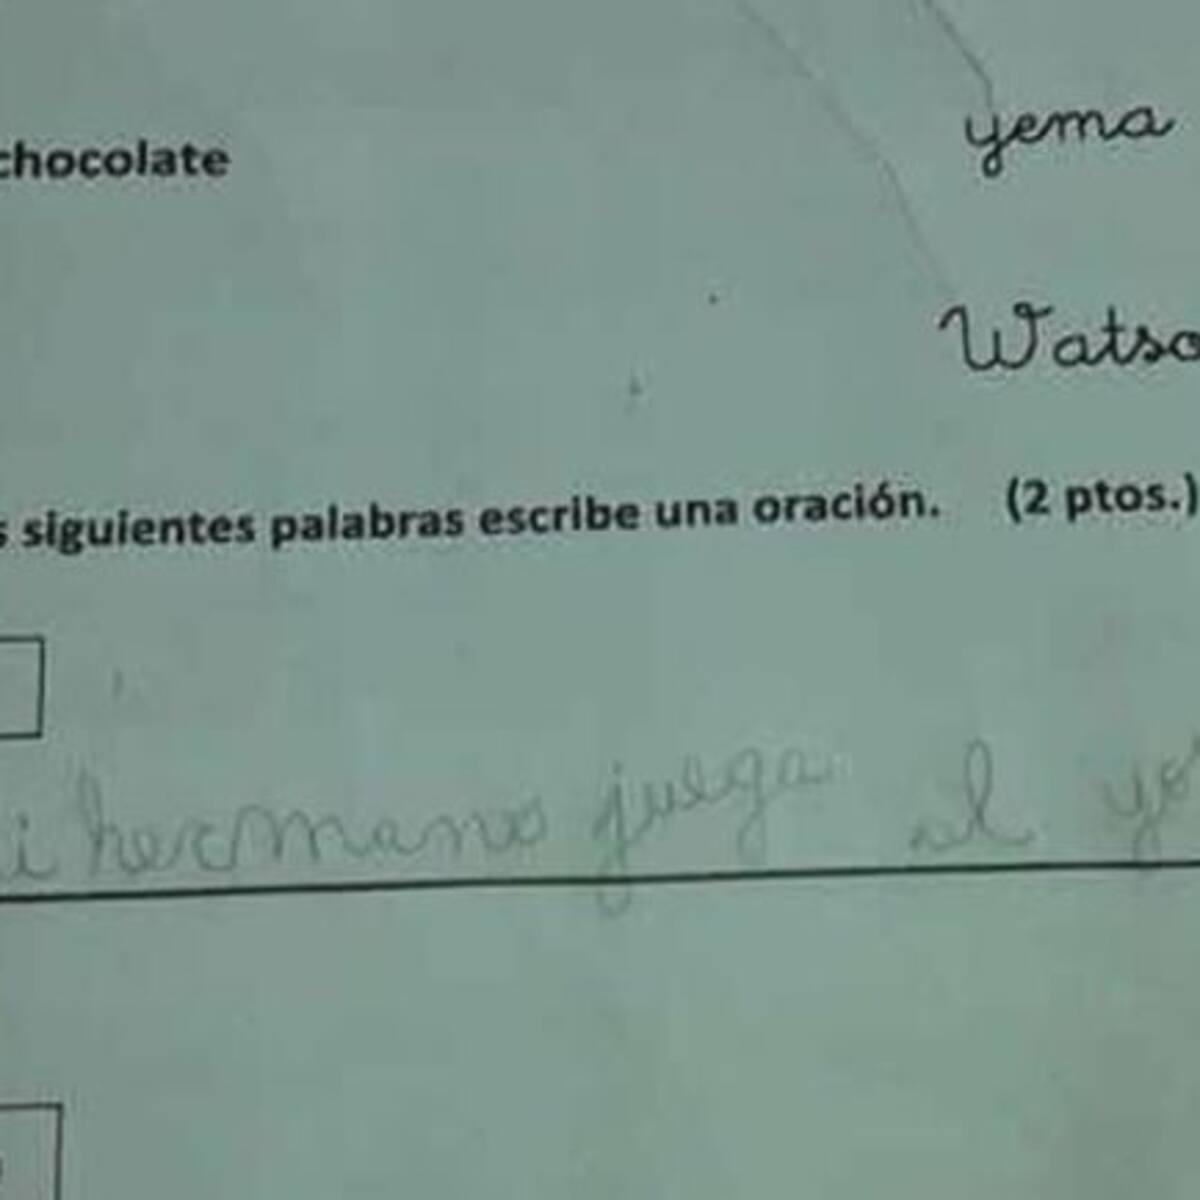 chocolate
yema
Watso
s siguientes palabras escribe una oración. (2 ptos.)
i hermano juega al yo